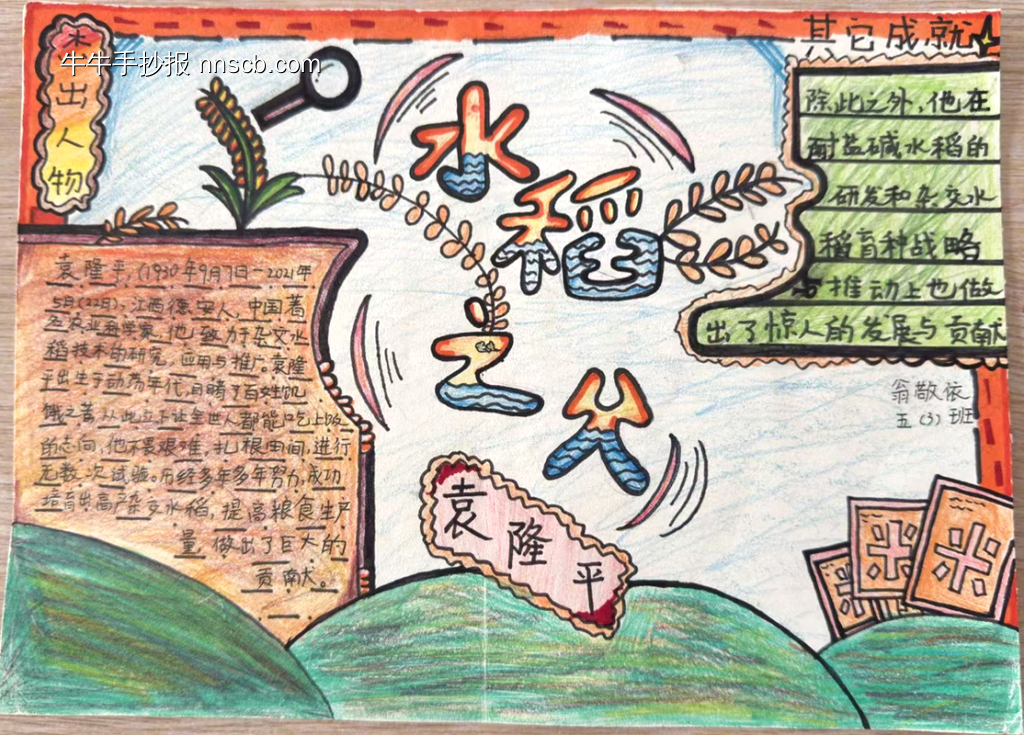 杰出人物
牛牛手抄报 nnscb.com
其它成就
水稻之父
袁隆平
袁隆平,(1930年9月7日-2021年
5月(22日),江西德安人,中国著
名农业科学家,他致力于杂交水
稻技术的研究,应用与推广。袁隆
平出生于动荡年代,目睹了百姓饥
饿之苦,从此立下让全世人都能吃上饭
的志向,他不畏艰难,扎根田间,进行
无数次试验。历经多年多年努力,成功
培育出高产杂交水稻,提高粮食生产
量,做出了巨大的
贡献。
除此之外,他在
耐盐碱水稻的
研发和杂交水
稻育种战略
与推动上也做
出了惊人的发展与贡献
翁敬依
五(3)班
米
米